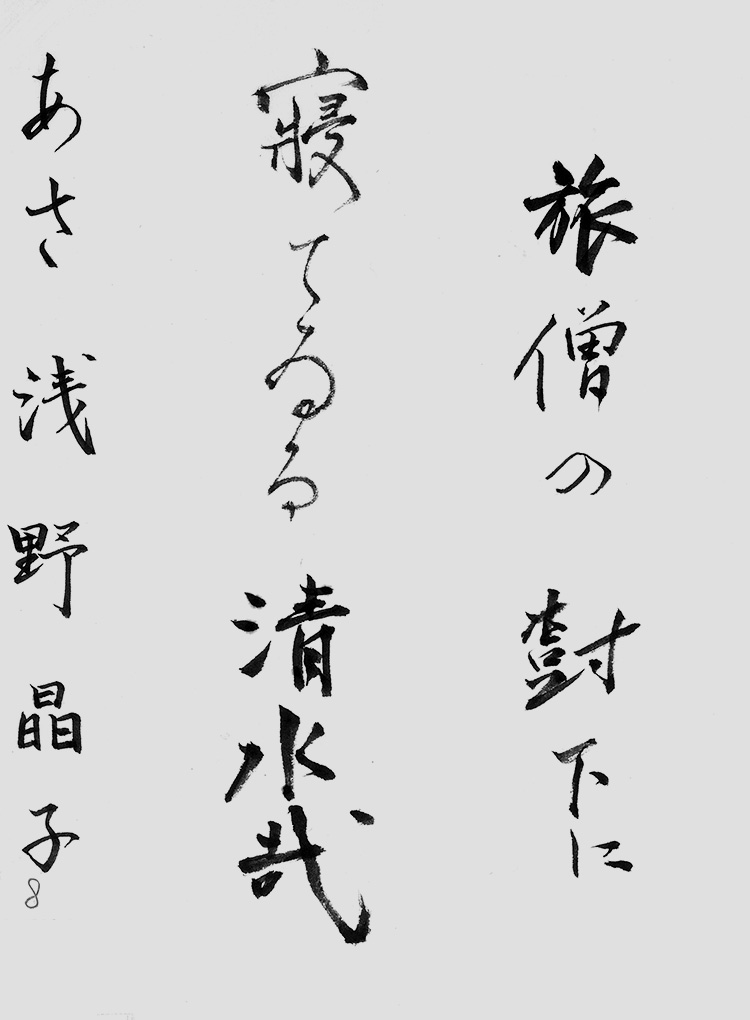 旅僧の樹下に
寝てゐる清水哉
あさ 浅野晶子
8